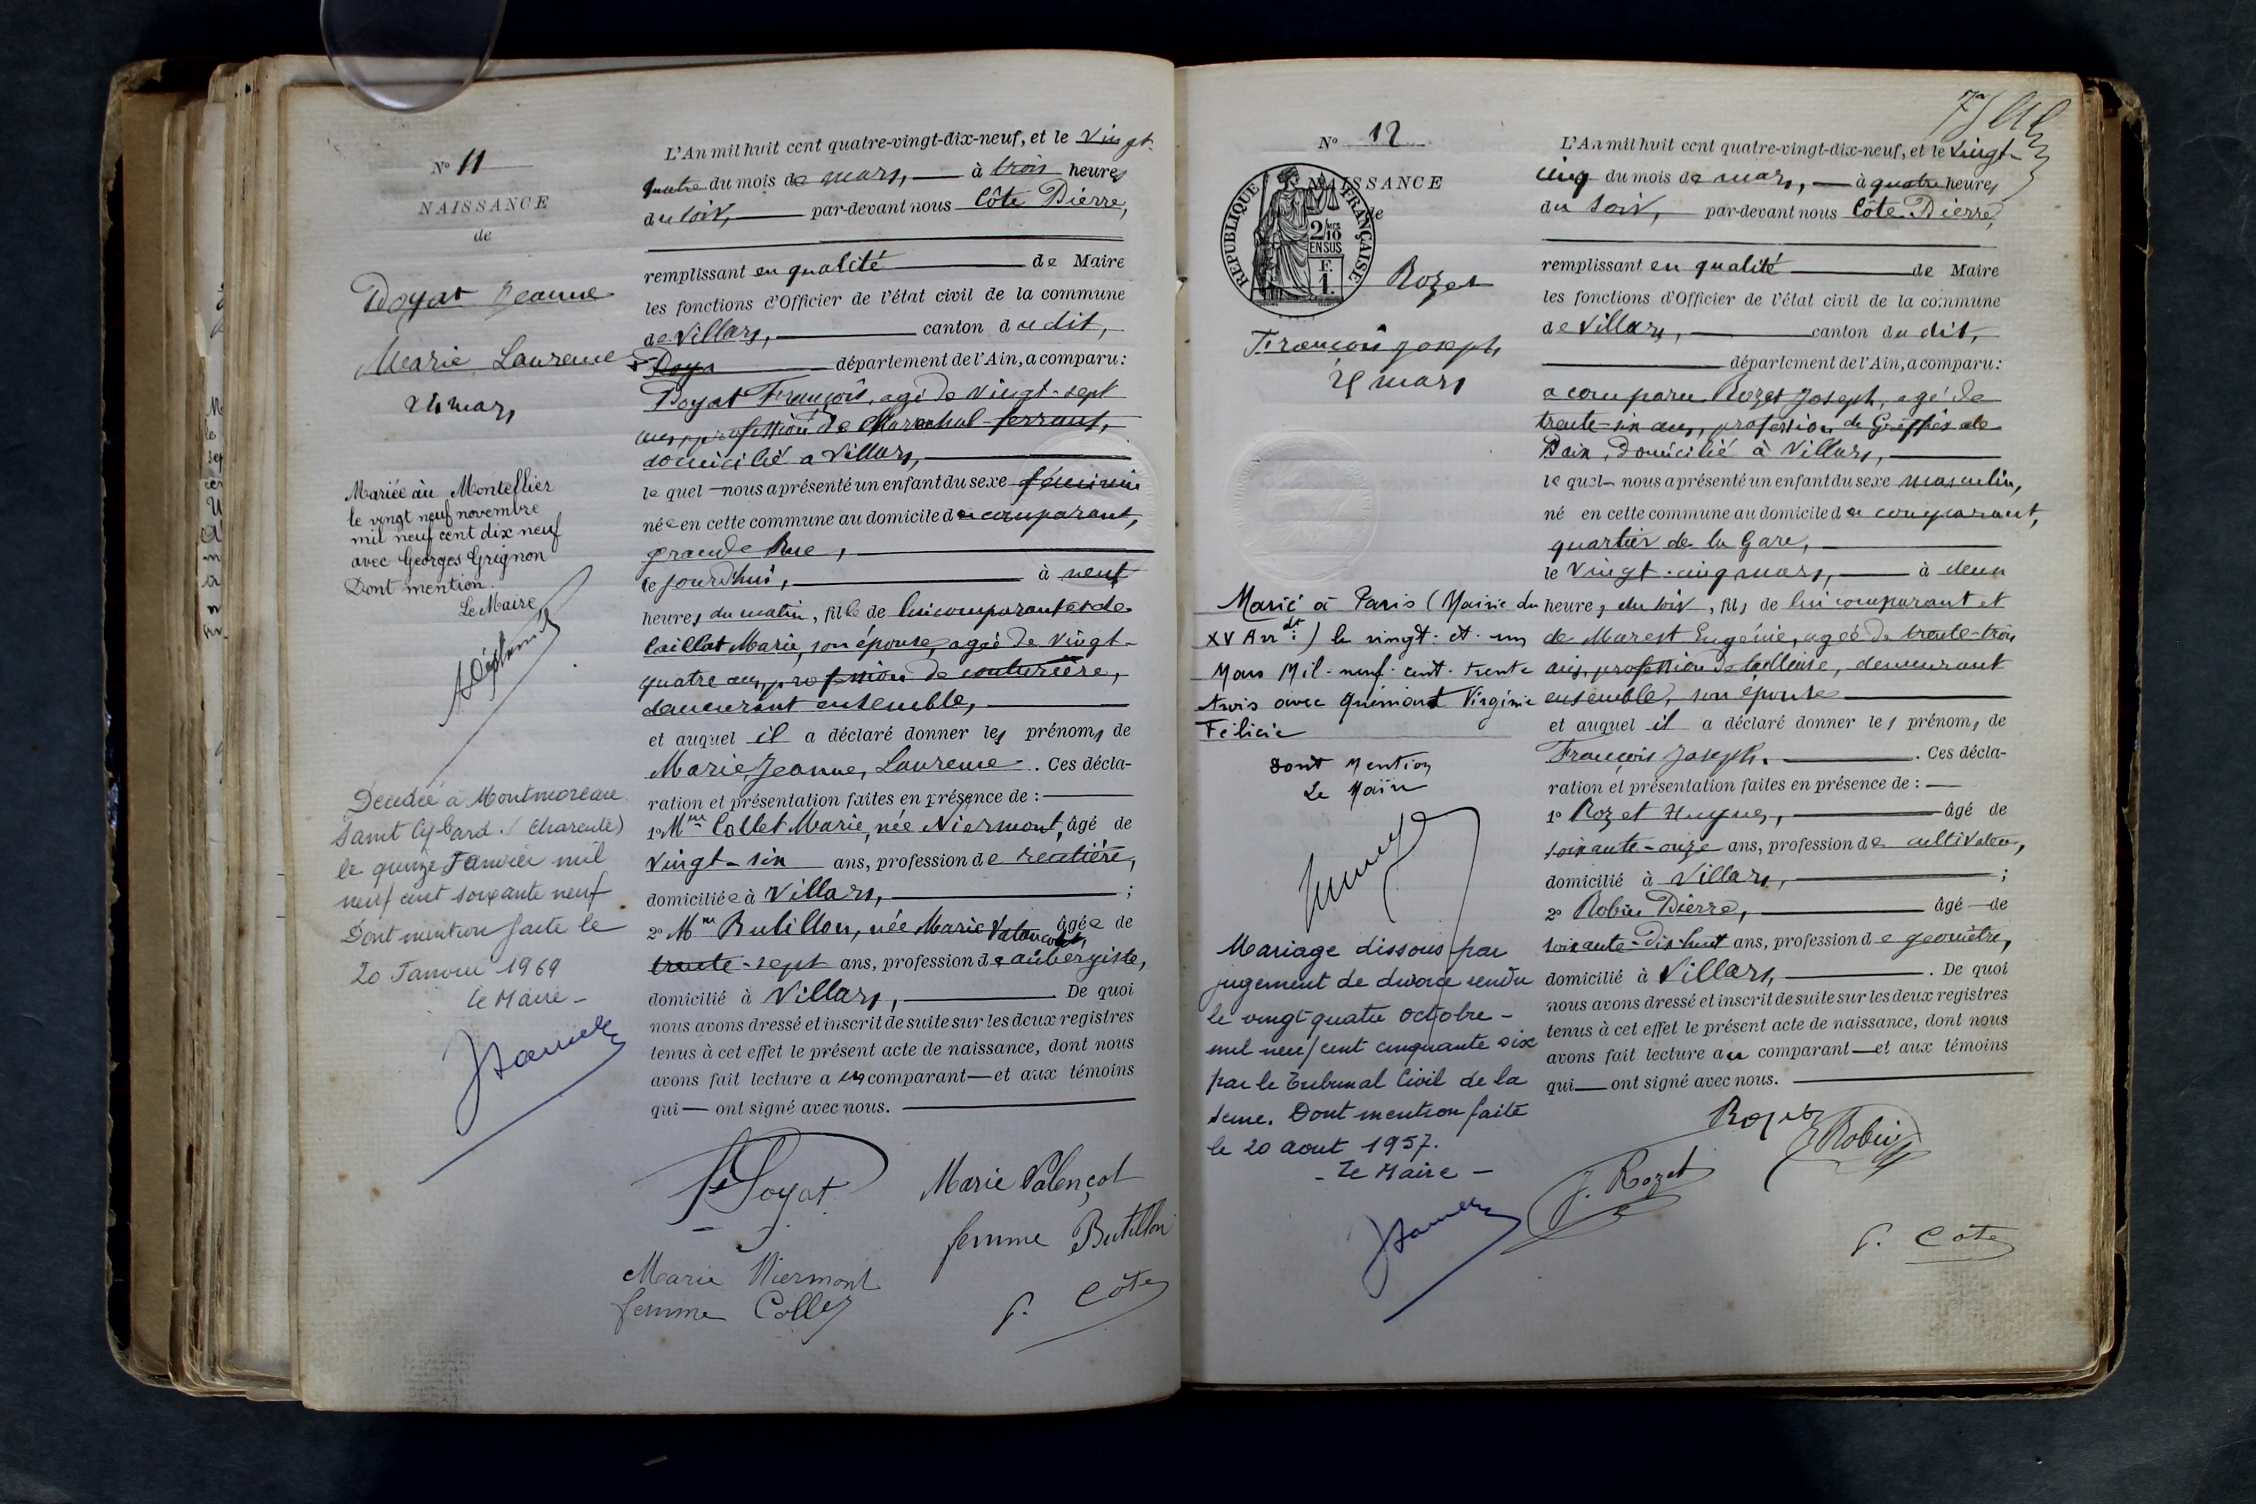 Nº 11
NAISSANCE
de
Poyat Jeanne
Marie Laurence
24 mars
Mariée au Montellier
le vingt neuf novembre
mil neuf cent dix neuf
avec Georges Grignon
Dont mention.
Le Maire
Décédée à Montmoreau
Saint Cybard (Charente)
le quinze Janvier mil
neuf cent soixante neuf
Dont mention faite le
20 Janvier 1969
Le Maire -
L'An mil huit cent quatre-vingt-dix-neuf, et le vingt-
quatre du mois de mars, à trois heures
du soir, par-devant nous Côte Pierre,
remplissant en qualité de Maire
les fonctions d'Officier de l'état civil de la commune
de Villars, canton du dit,
Poya département de l'Ain, a comparu:
Poyat François, agé de vingt-sept
ans, profession de Marechal-ferrant,
domicilié à Villars,
le quel nous a présenté un enfant du sexe féminin
née en cette commune au domicile du comparant,
grande Rue,
ce jourd'hui, à neuf
heures du matin, fille de lui comparant et de
Caillat Marie, son épouse, agée de vingt-
quatre ans, profession de couturière,
demeurant ensemble,
et auquel il a déclaré donner les prénoms de
Marie, Jeanne, Laurence. Ces décla-
ration et présentation faites en présence de :
1º Mme Collet Marie, née Niermont, âgé de
vingt-six ans, profession de rentière,
domiciliée à Villars, ;
2º Mme Butillon, née Marie Valençot, âgée de
trente-sept ans, profession de aubergiste,
domicilié à Villars, De quoi
nous avons dressé et inscrit de suite sur les deux registres
tenus à cet effet le présent acte de naissance, dont nous
avons fait lecture au comparant et aux témoins
qui ont signé avec nous.
Poyat
Marie Valençot
femme Butillon
Marie Niermont
femme Collet
P. Côte
Nº 12
NAISSANCE
de
REPUBLIQUE FRANÇAISE
2/10
EN SUS
F.
1.
Rozet
François Joseph
25 mars
Marié à Paris (Mairie du
XV Arrdt) le vingt-et-un
Mars Mil-neuf-cent-trente
trois avec Quémont Virginie
Félicie
Dont Mention
Le Maire
Mariage dissous par
jugement de divorce rendu
le vingt-quatre octobre -
mil neuf cent cinquante six
par le Tribunal Civil de la
Seine. Dont mention faite
le 20 aout 1957.
- Le Maire -
L'An mil huit cent quatre-vingt-dix-neuf, et le vingt-
cinq du mois de mars, à quatre heures
du soir, par-devant nous Côte Pierre,
remplissant en qualité de Maire
les fonctions d'Officier de l'état civil de la commune
de Villars, canton du dit,
département de l'Ain, a comparu:
a comparu Rozet Joseph, agé de
trente-six ans, profession de Greffier de
Paix, domicilié à Villars,
le quel nous a présenté un enfant du sexe masculin,
né en cette commune au domicile du comparant,
quartier de la Gare,
le vingt-cinq mars, à deux
heures du soir, fils de lui comparant et
de Marest Eugénie, agée de trente-trois
ans, profession de tailleuse, demeurant
ensemble, son épouse
et auquel il a déclaré donner les prénoms de
François Joseph. Ces décla-
ration et présentation faites en présence de :
1º Rozet Hugues, âgé de
soixante-onze ans, profession de cultivateur,
domicilié à Villars, ;
2º Robin Pierre, âgé de
soixante-dix huit ans, profession de géomètre,
domicilié à Villars, De quoi
nous avons dressé et inscrit de suite sur les deux registres
tenus à cet effet le présent acte de naissance, dont nous
avons fait lecture au comparant et aux témoins
qui ont signé avec nous.
Rozet
Robin
J. Rozet
P. Côte